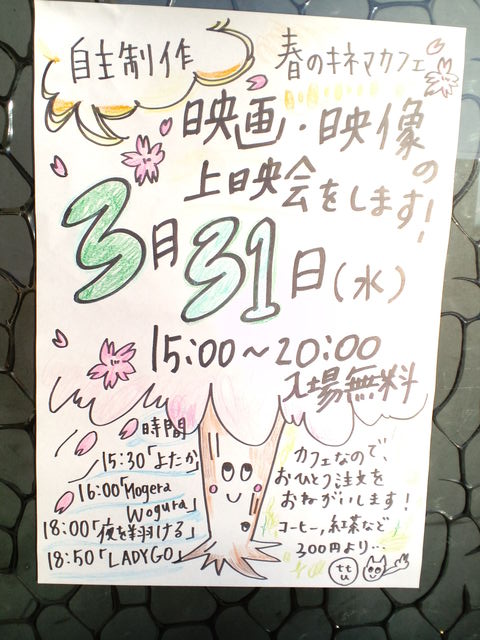 自主制作
春のキネマカフェ
映画・映像の
上映会をします!
3月31日(水)
15:00〜20:00
入場無料
時間
15:30「よたか
16:00「Mogera
Wogura」
18:00「夜を翔ける」
18:50「LADY GO」
カフェなので、
おひとつ注文を
おねがいします!
コーヒー,紅茶など
300円より…
ttu